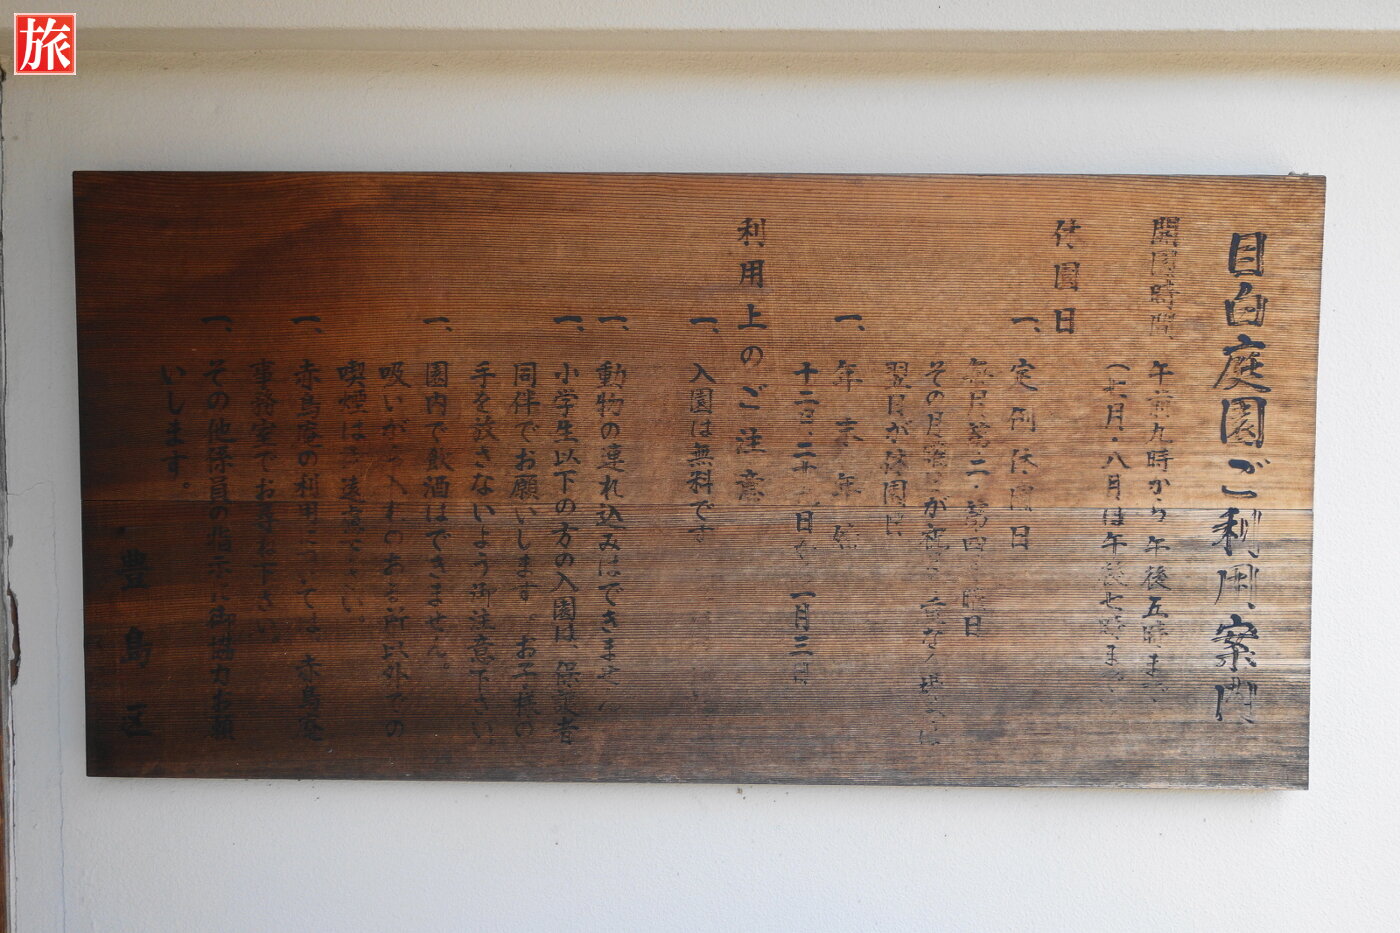 旅
目白庭園ご利用案内
開園時間 午前九時から午後五時まで
(七月・八月は午後七時まで
休園日
一、定例休園日
毎月第二・第四月曜日
その月曜日が祝日と重なる場合は
翌日が休園日
一、年末年始
十二月二十九日から一月三日
利用上のご注意
一、入園は無料です
一、動物の連れ込みはできません
一、小学生以下の方の入園は、保護者
同伴でお願いします。お子様の
手を放さないよう御注意下さい
一、園内で飲酒はできません。
吸いがら入れのある所以外での
喫煙はご遠慮下さい。
一、赤鳥庵の利用については、赤鳥庵
事務室でお尋ね下さい
一、その他係員の指示に御協力お願
いします。
豊島区